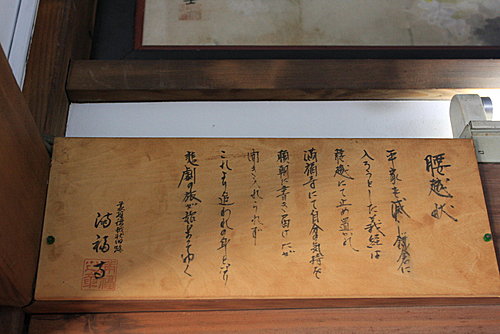 腰越状
平家を滅し鎌倉に
入ろうとした義経は
腰越にて止め置かれ
満福寺にて自分の気持を
頼朝に書き届けたが
聞き入れられず
これより追われる身となり
悲劇の旅が始まりゆく
義経伝説史跡
満福寺